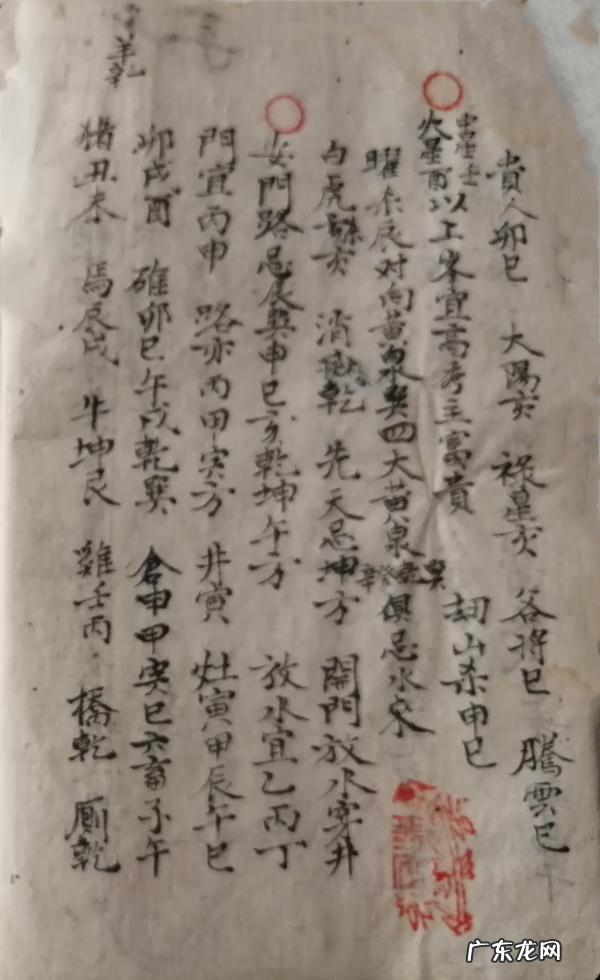 貴人卯巳 大陽亥 祿星亥 谷将巳 騰雲巳
火星酉以上峯宜高秀主富貴 刧山杀申巳
曜杀辰对向黄泉巽四大黄泉 俱忌水来
白虎 亥 消 乾 先天忌坤方 開門放水穿井
安門路忌辰巽申巳亥乾坤午方 放水宜乙丙丁
門宜丙申 路亦丙甲寅方 井寅 灶寅甲辰午巳
卯戌酉 碓卯巳午戌乾巽 倉申甲寅巳六畜子午
猪丑未 馬辰戌 牛坤艮 雞壬丙 橋乾 厠乾
羊乾
广东龙网